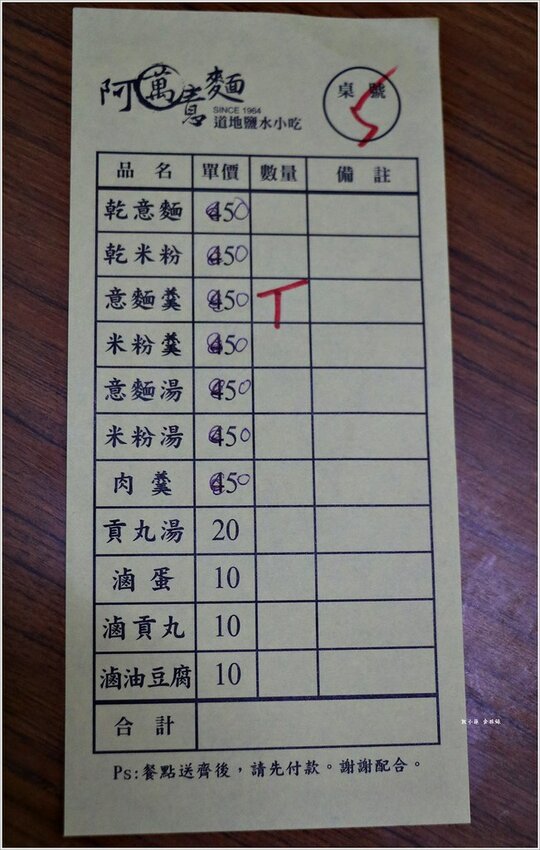 阿萬意麵
SINCE 1964
道地鹽水小吃
桌號 5
品名 單價 數量 備註
乾意麵 50
乾米粉 50
意麵羹 50 T
米粉羹 50
意麵湯 50
米粉湯 50
肉羹 50
貢丸湯 20
滷蛋 10
滷貢丸 10
滷油豆腐 10
合計
Ps:餐點送齊後，請先付款。謝謝配合。